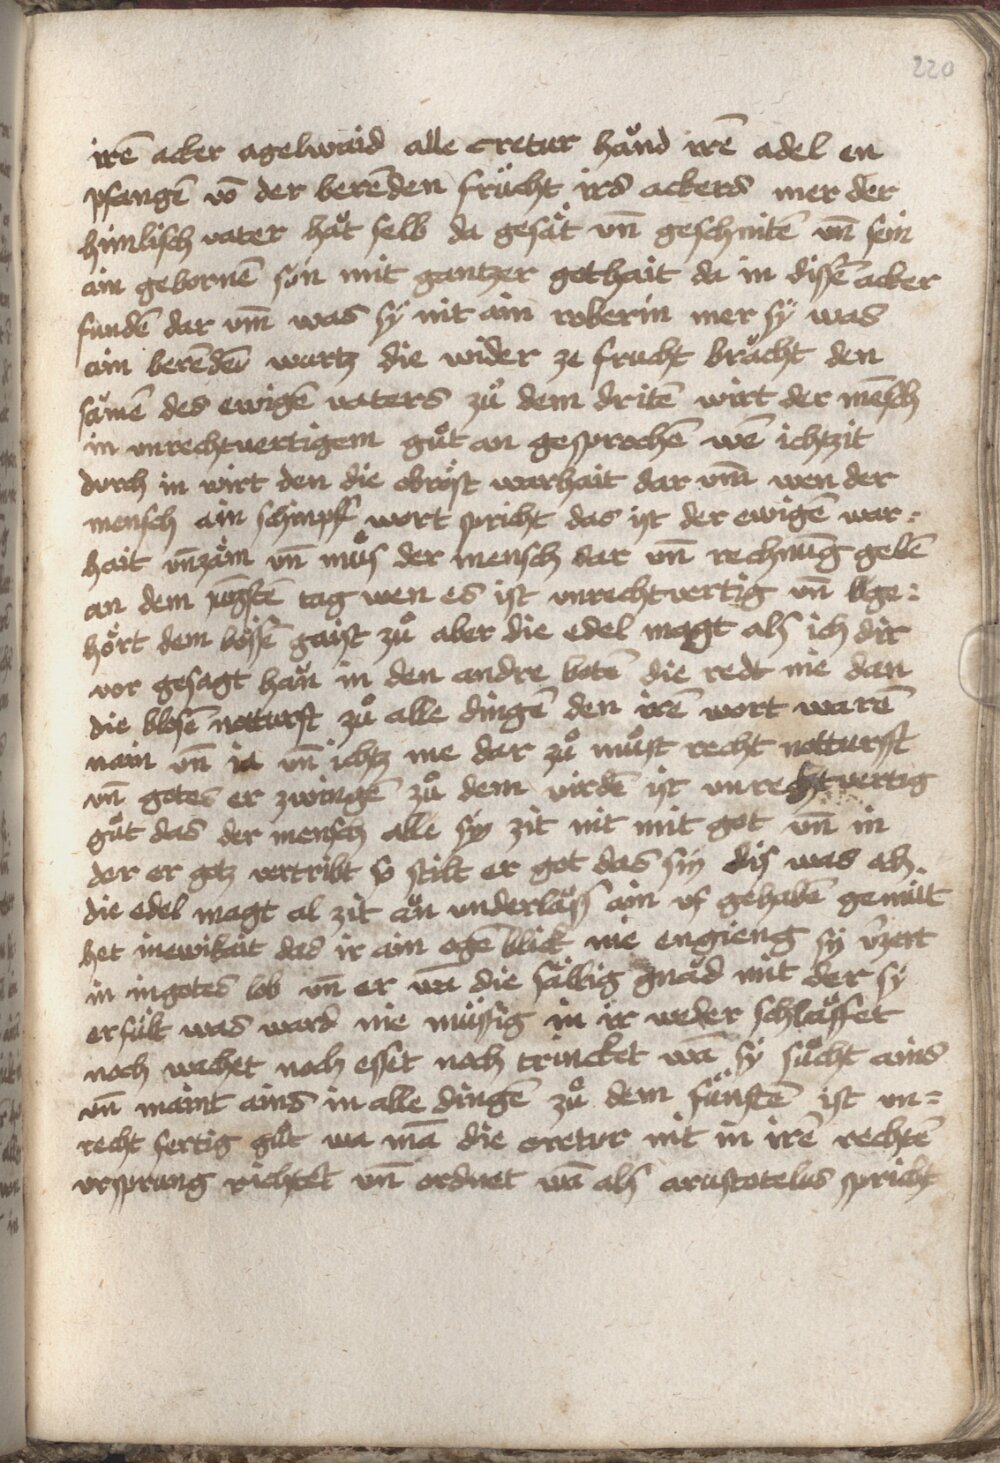 220
irē acker agelwaid alle cretur hând irē adel en
pfangē vō der berēden frücht irs ackers mer der
himlisch vater hât selb da gesät vn̄ geschnitē vn̄ sein
ain gebornē sun mit gantzer gothait da in dissē acker
fundē dar vm̄ was sÿ nit ain roberin mer sÿ was
ain berēdē wurtz die wider ze frucht brâcht den
sâmē des ewigē vaters zů dem dritē wirt der mēsch
in vnrechtvertigem gůt an gesprochē wē ichtzit
durch in wirt den die obröst warhait dar vm̄ wen der
mensch ain schimpff wort spricht das ist der ewigē war⸗
hait vnzäm vn̄ můs der mensch dar vn̄ rechnūg gebē
an dem jūgstē tag wen es ist vnrechtvertig vn̄ ge⸗
hört dem bösē gaist zů aber die edel magt als ich dir
vor gesagt hân in den andre botē die redt nie dan
die blosē notturft zů alle dingē den irē wort warē
nain vn̄ ia vn̄ ichtz me dar zů můst recht notturfft
vn̄ gotes er zwingē zů dem virdē ist vnrechtvertig
gůt das der mensch alle sin zit nit mit got vn̄ in
der er gotz vertribt so stilt er got das sin dis was als
die edel magt al zit ân vnderlâss ain uf gehabē gemüt
het inewikait das ir ain ogē blick nie engieng sÿ v̄zert
in in gotes lob vn̄ er wā die sälbig gnâd mit der sÿ
erfült was ward nie müssig in ir weder schlâffet
noch wachet noch esset noch trincket wā sÿ sůcht ains
vn̄ maint ains in alle dingē zů dem fünftē ist vn⸗
recht fertig gůt wa mā die cretur nit in irē rechtē
vrsprung richtet vn̄ ordnet wā als arustoteles spricht